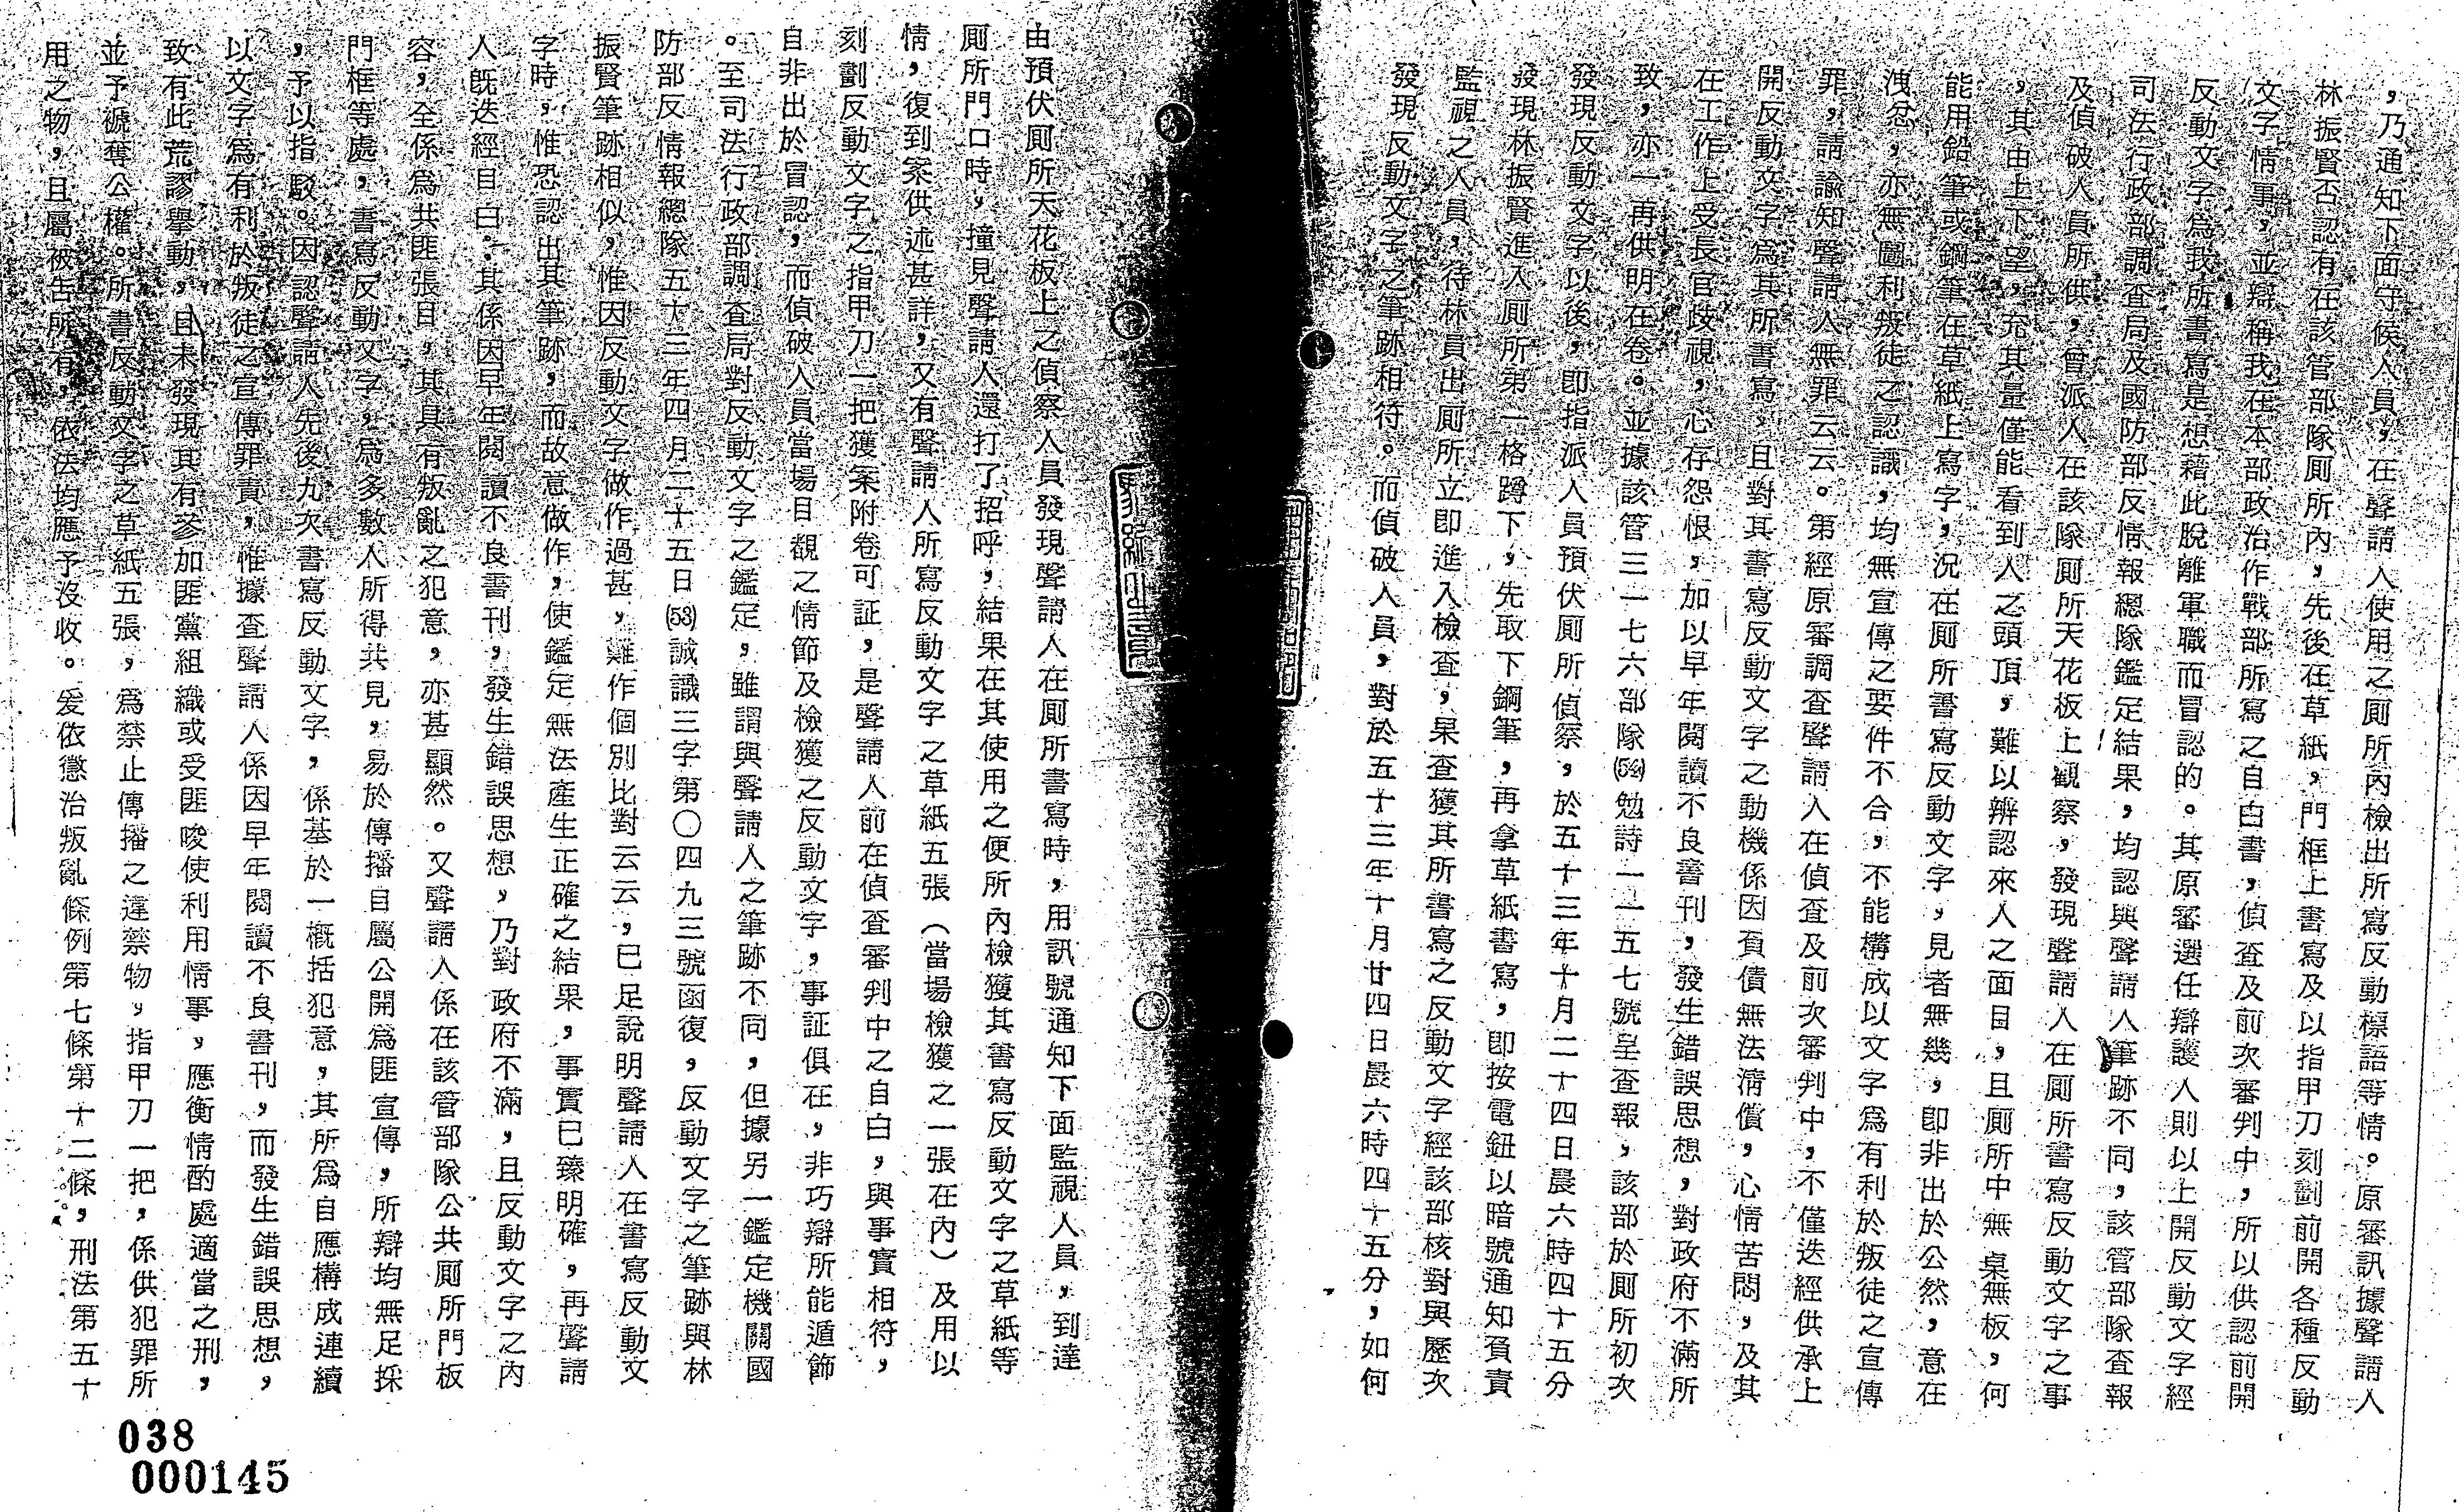 ，乃通知下面守候人員，在聲請人使用之厠所內檢出所寫反動標語等情。原審訊據聲請人
林振賢否認有在該管部隊厠所內，先後在草紙，門框上書寫及以指甲刀刻劃前開各種反動
文字情事，並辯稱我在本部政治作戰部所寫之自白書，偵查及前次審判中，所以供認前開
反動文字爲我所書寫是想藉此脫離軍職而冒認的。其原審選任辯護人則以上開反動文字經
司法行政部調查局及國防部反情報總隊鑑定結果，均認與聲請人筆跡不同，該管部隊查報
及偵破人員所供，曾派人在該隊厠所天花板上觀察，發現聲請人在厠所書寫反動文字之事
，其由上下望，充其量僅能看到人之頭頂，難以辨認來人之面目，且厠所中無桌無板，何
能用鉛筆或鋼筆在草紙上寫字，況在厠所書寫反動文字，見者無幾，卽非出於公然，意在
洩忿，亦無圖利叛徒之認識，均無宣傳之要件不合，不能構成以文字爲有利於叛徒之宣傳
罪，請諭知聲請人無罪云云。第經原審調查聲請人在偵查及前次審判中，不僅迭經供承上
開反動文字爲其所書寫，且對其書寫反動文字之動機係因負債無法淸償，心情苦悶，及其
在工作上受長官歧視，心存怨恨，加以早年閱讀不良書刊，發生錯誤思想，對政府不滿所
致，亦一再供明在卷。並據該管三一七六部隊(54)勉詩一一五七號呈查報，該部於厠所初次
發現反動文字以後，卽指派人員預伏厠所偵察，於五十三年十月二十四日晨六時四十五分
發現林振賢進入厠所第一格蹲下，先取下鋼筆，再拿草紙書寫，卽按電鈕以暗號通知負責
監視之人員，待林員出厠所立卽進入檢查，果查獲其所書寫之反動文字經該部核對與歷次
發現反動文字之筆跡相符。而偵破人員，對於五十三年十月廿四日晨六時四十五分，如何
由預伏厠所天花板上之偵察人員發現聲請人在厠所書寫時，用訊號通知下面監視人員，到達
厠所門口時，撞見聲請人還打了招呼，結果在其使用之便所內檢獲其書寫反動文字之草紙等
情，復到案供述甚詳，又有聲請人所寫反動文字之草紙五張（當場檢獲之一張在內）及用以
刻劃反動文字之指甲刀一把獲案附卷可証，是聲請人前在偵查審判中之自白，與事實相符，
自非出於冒認，而偵破人員當場目覩之情節及檢獲之反動文字，事証俱在，非巧辯所能遁飾
。至司法行政部調查局對反動文字之鑑定，雖謂與聲請人之筆跡不同，但據另一鑑定機關國
防部反情報總隊五十三年四月二十五日(53)誠識三字第〇四九三號函復，反動文字之筆跡與林
振賢筆跡相似，惟因反動文字做作過甚，難作個別比對云云，已足說明聲請人在書寫反動文
字時，惟恐認出其筆跡，而故意做作，使鑑定無法產生正確之結果，事實已臻明確，再聲請
人旣迭經自白。其係因早年閱讀不良書刊，發生錯誤思想，乃對政府不滿，且反動文字之內
容，全係爲共匪張目，其具有叛亂之犯意，亦甚顯然。又聲請人係在該管部隊公共厠所門板
門框等處，書寫反動文字，爲多數人所得共見，易於傳播自屬公開爲匪宣傳，所辯均無足採
，予以指駁。因認聲請人先後九次書寫反動文字，係基於一概括犯意，其所爲自應構成連續
以文字爲有利於叛徒之宣傳罪責，惟據查聲請人係因早年閱讀不良書刊，而發生錯誤思想，
致有此荒謬舉動，且未發現其有參加匪黨組織或受匪唆使利用情事，應衡情酌處適當之刑，
並予褫奪公權。所書反動文字之草紙五張，爲禁止傳播之違禁物，指甲刀一把，係供犯罪所
用之物，且屬被告所有，依法均應予沒收。爰依懲治叛亂條例第七條第十二條，刑法第五十
038
000145